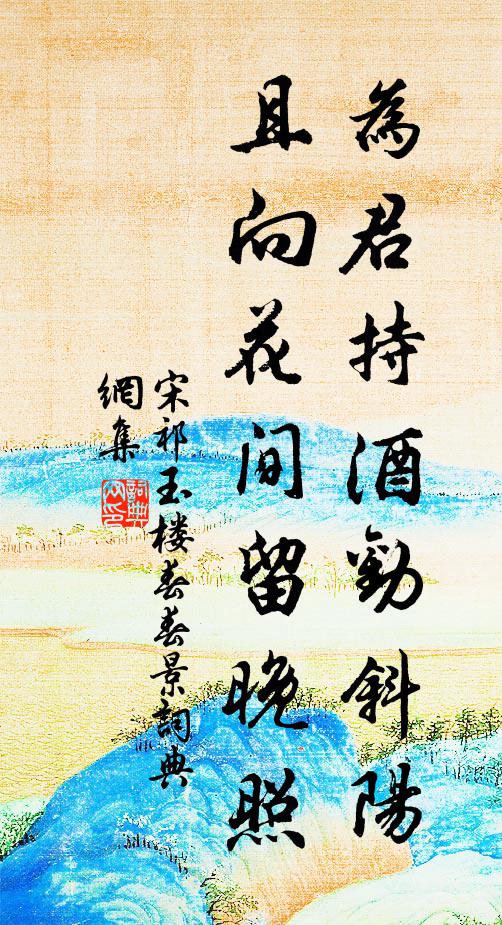 為君持酒勸斜陽
且向花間留晚照
宋祁玉楼春春景詞典
網集
詞典网印